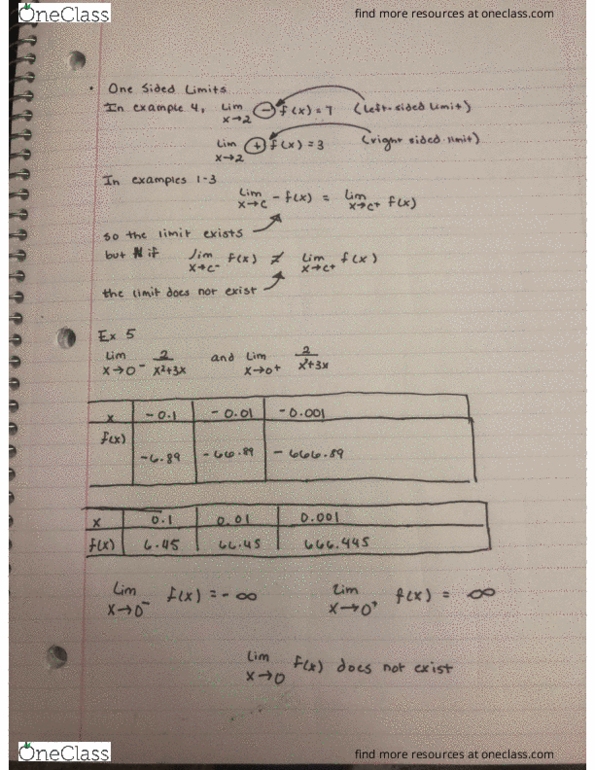 OneClass
find more resources at oneclass.com
• One Sided Limits
In example 4, Lim x→2 − f(x) = 7 (left-sided limit)
Lim x→2 + f(x) = 3 (right sided limit)
In examples 1-3
Lim x→c − f(x) = Lim x→c+ f(x)
so the limit exists
but if lim x→c- f(x) ≠ Lim x→c+ f(x)
the limit does not exist
Ex 5
Lim x→0- 2/x²+3x and Lim x→0+ 2/x²+3x
x -0.1 -0.01 -0.001
f(x) -6.89 -66.89 -666.89
x 0.1 0.01 0.001
f(x) 6.45 66.45 666.445
Lim x→0- f(x) = -∞ Lim x→0+ f(x) = ∞
Lim x→0 f(x) does not exist
OneClass
find more resources at oneclass.com